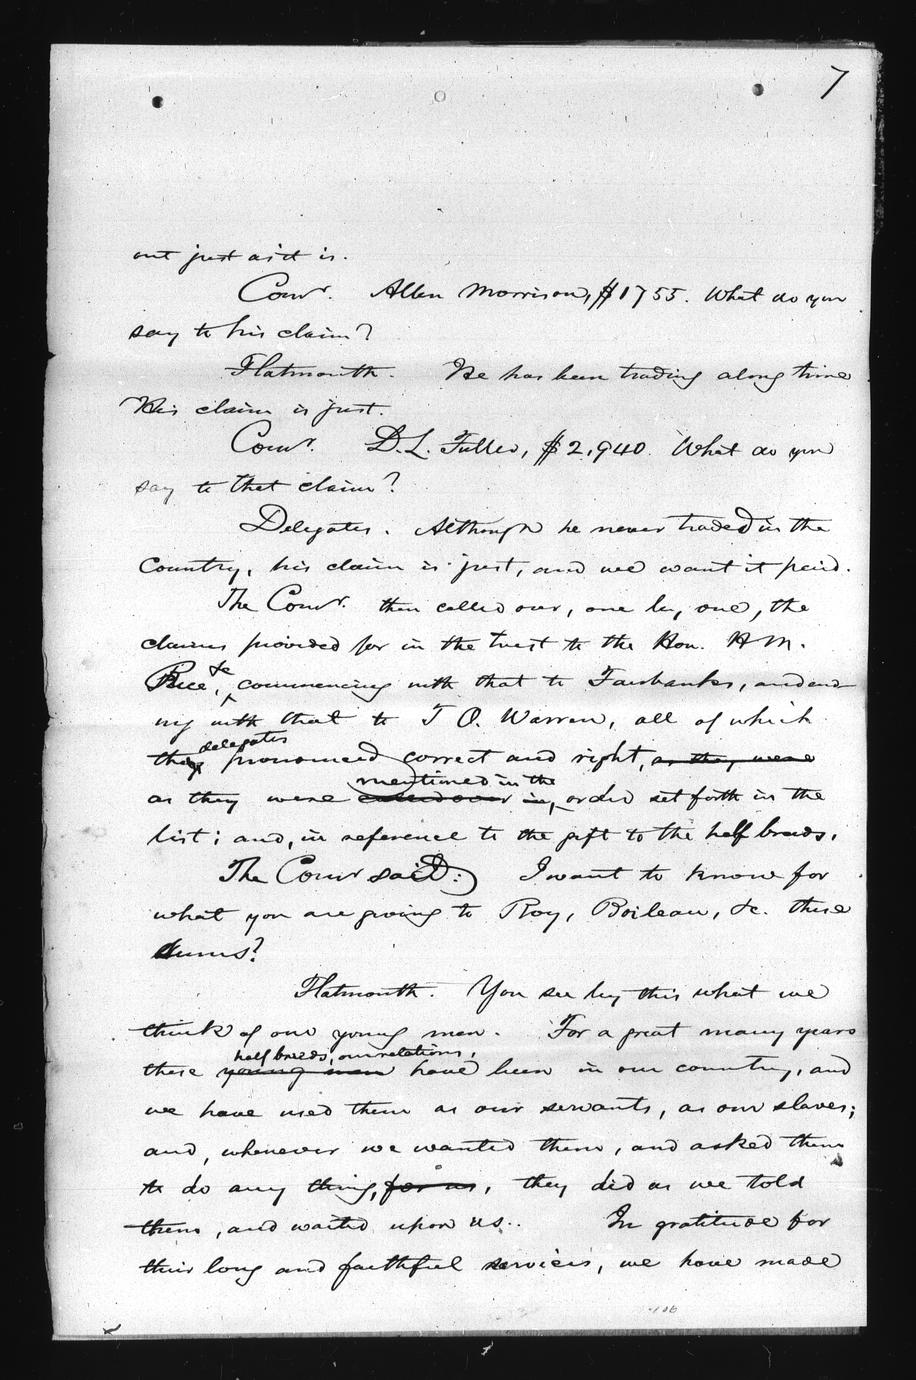 7
out just as it is.
Comr. Allen Morrison, $1755. What do you
say to his claim?
Flatmouth. He has been trading along time
His claim is just.
Comr. D.L. Fuller, $2,940. What do you
say to that claim?
Delegates. Although he never traded in the
Country, his claim is just, and we want it paid.
The Comr. then called over, one by one, the
claims provided for in the trust to the Hon. H M.
Rice, &c commencing with that to Fairbanks, and end
ing with that to T O. Warren, all of which
the delegates pronounced correct and right, as they were
as they were called over in, mentioned in the order set forth in the
list; and, in reference to the gift to the half breeds,
The Comr said:) I want to know for
what you are giving to Roy, Boileau, &c. these
sums?
Flatmouth. You see by this what we
think of our young men. For a great many years
these young men half breeds, our relations, have been in our country, and
we have used them as our servants, as our slaves;
and, whenever we wanted them, and asked them
to do any thing, for us, they did as we told
them, and waited upon us.. In gratitude for
their long and faithful services, we have made
106